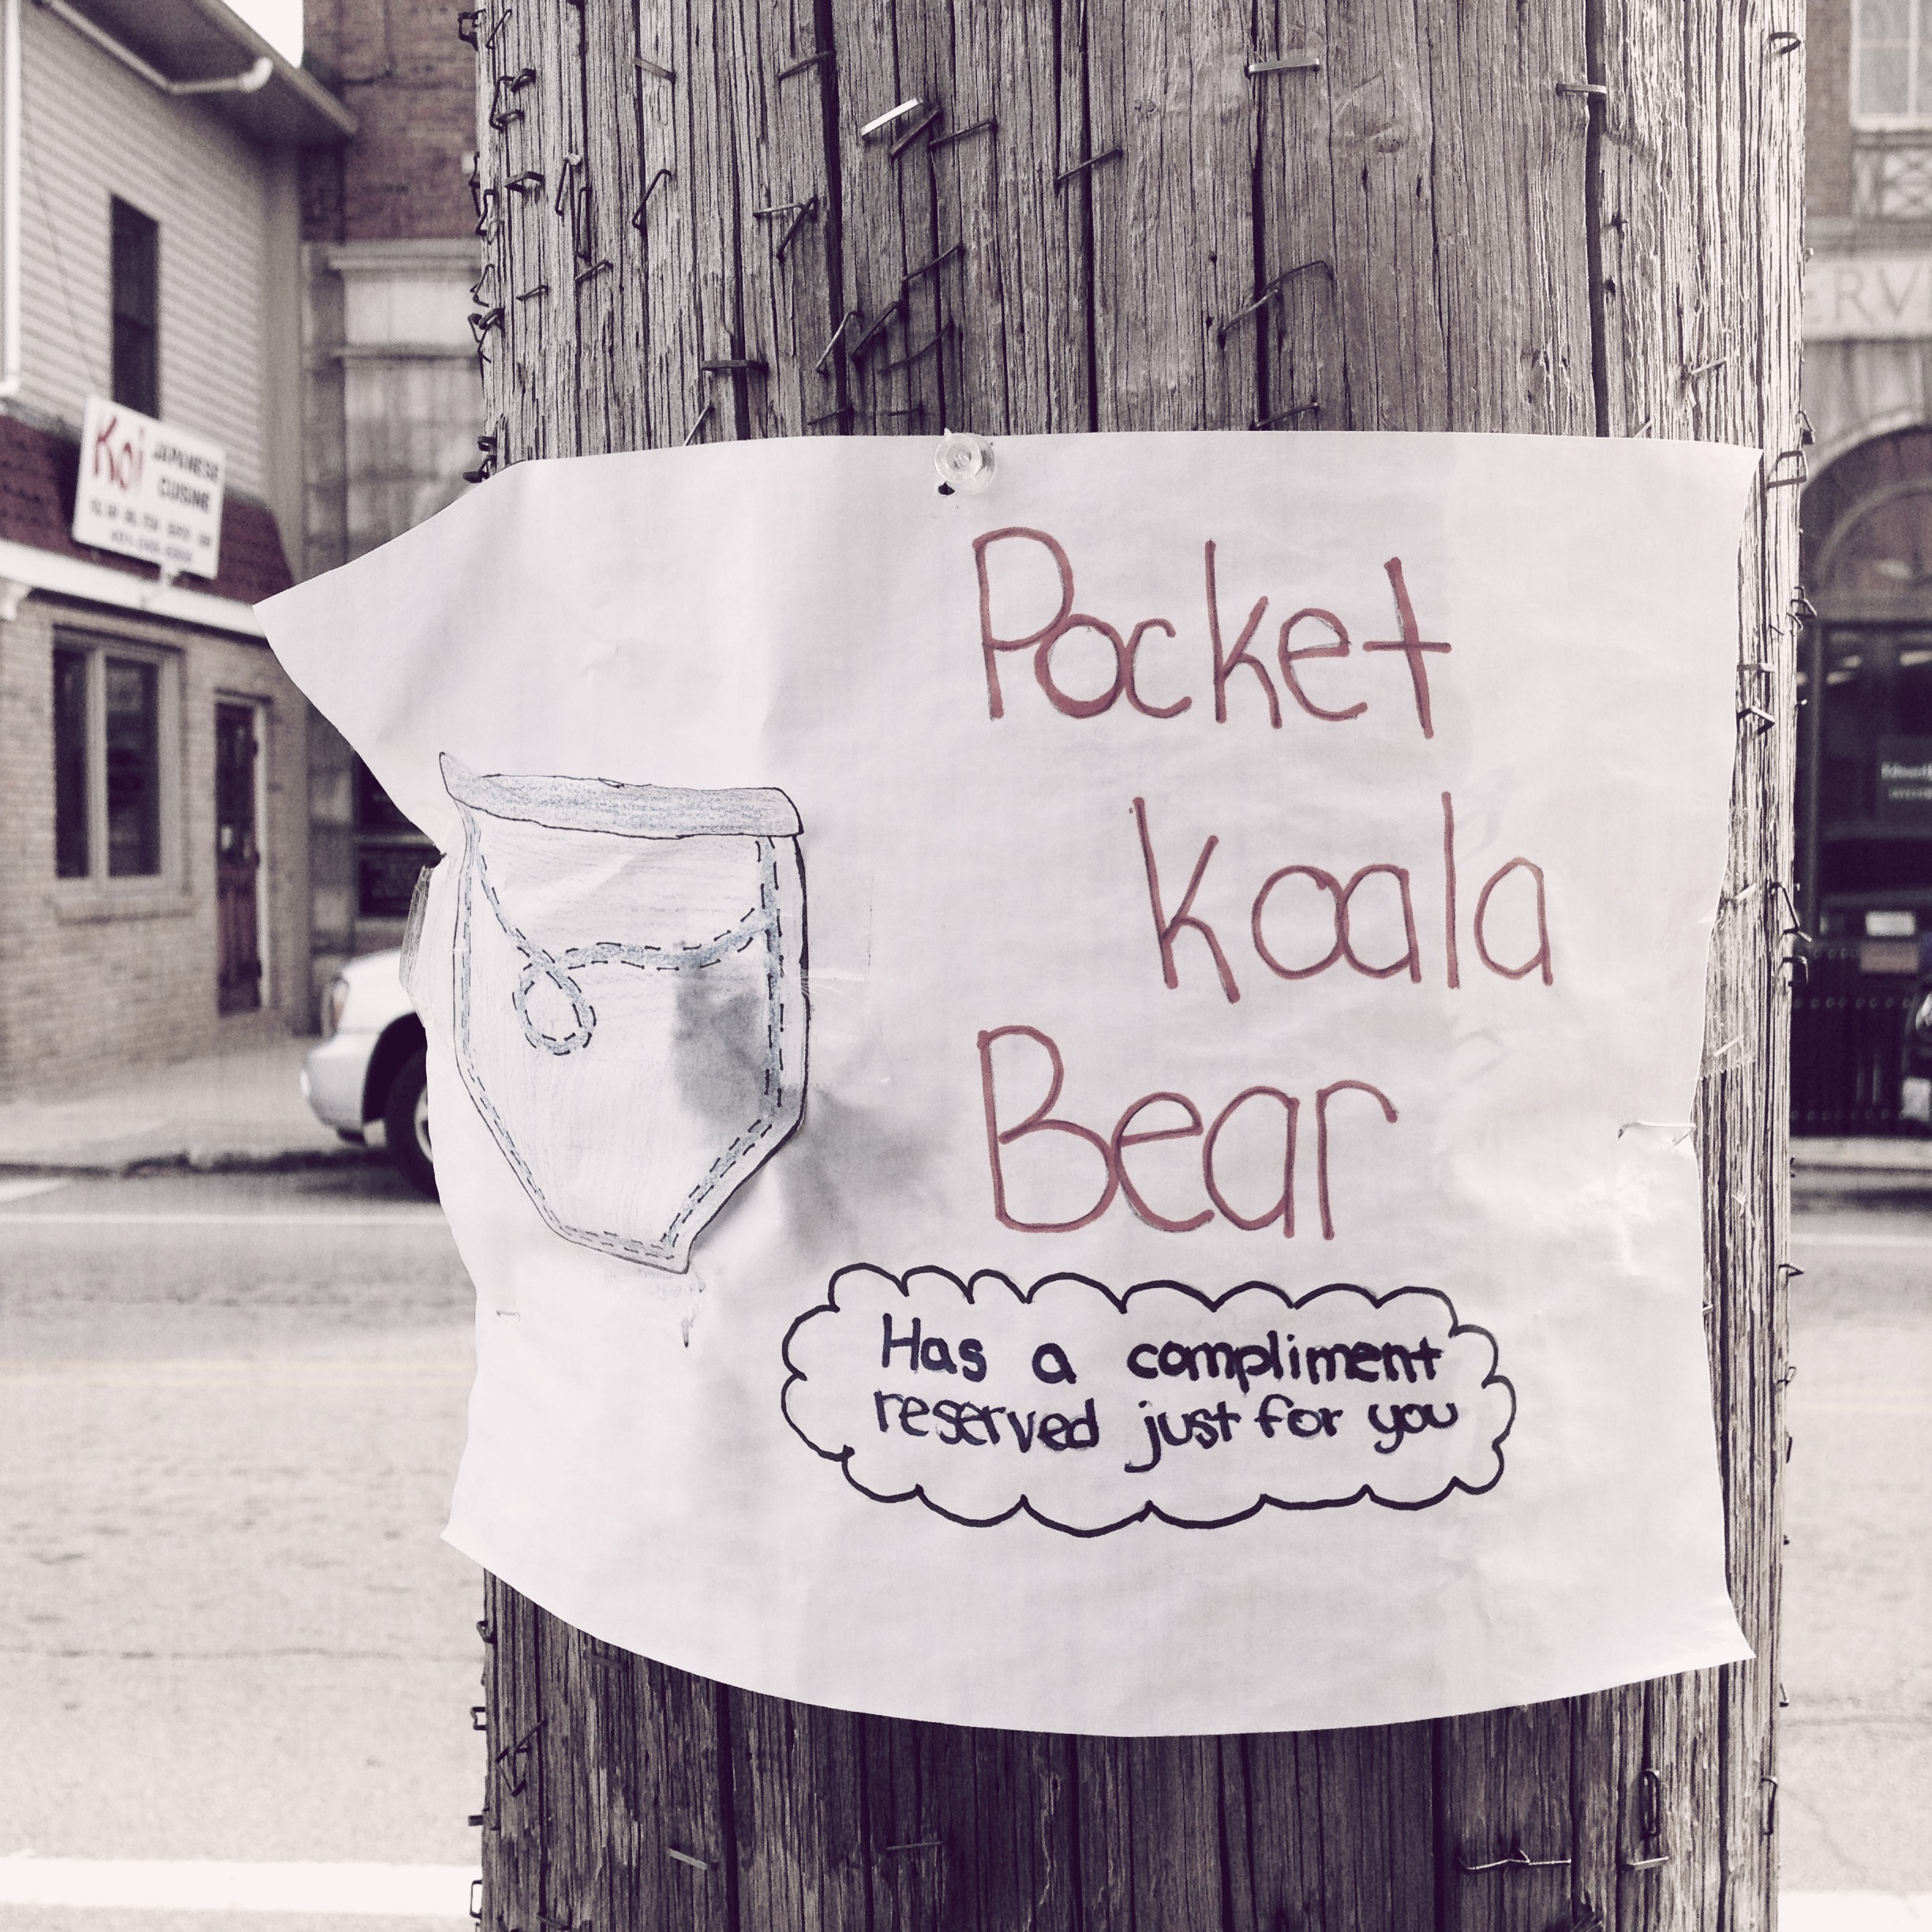 Koi JAPANESE
CUISINE
Pocket
koala
Bear
Has a compliment
reserved just for you
ERV